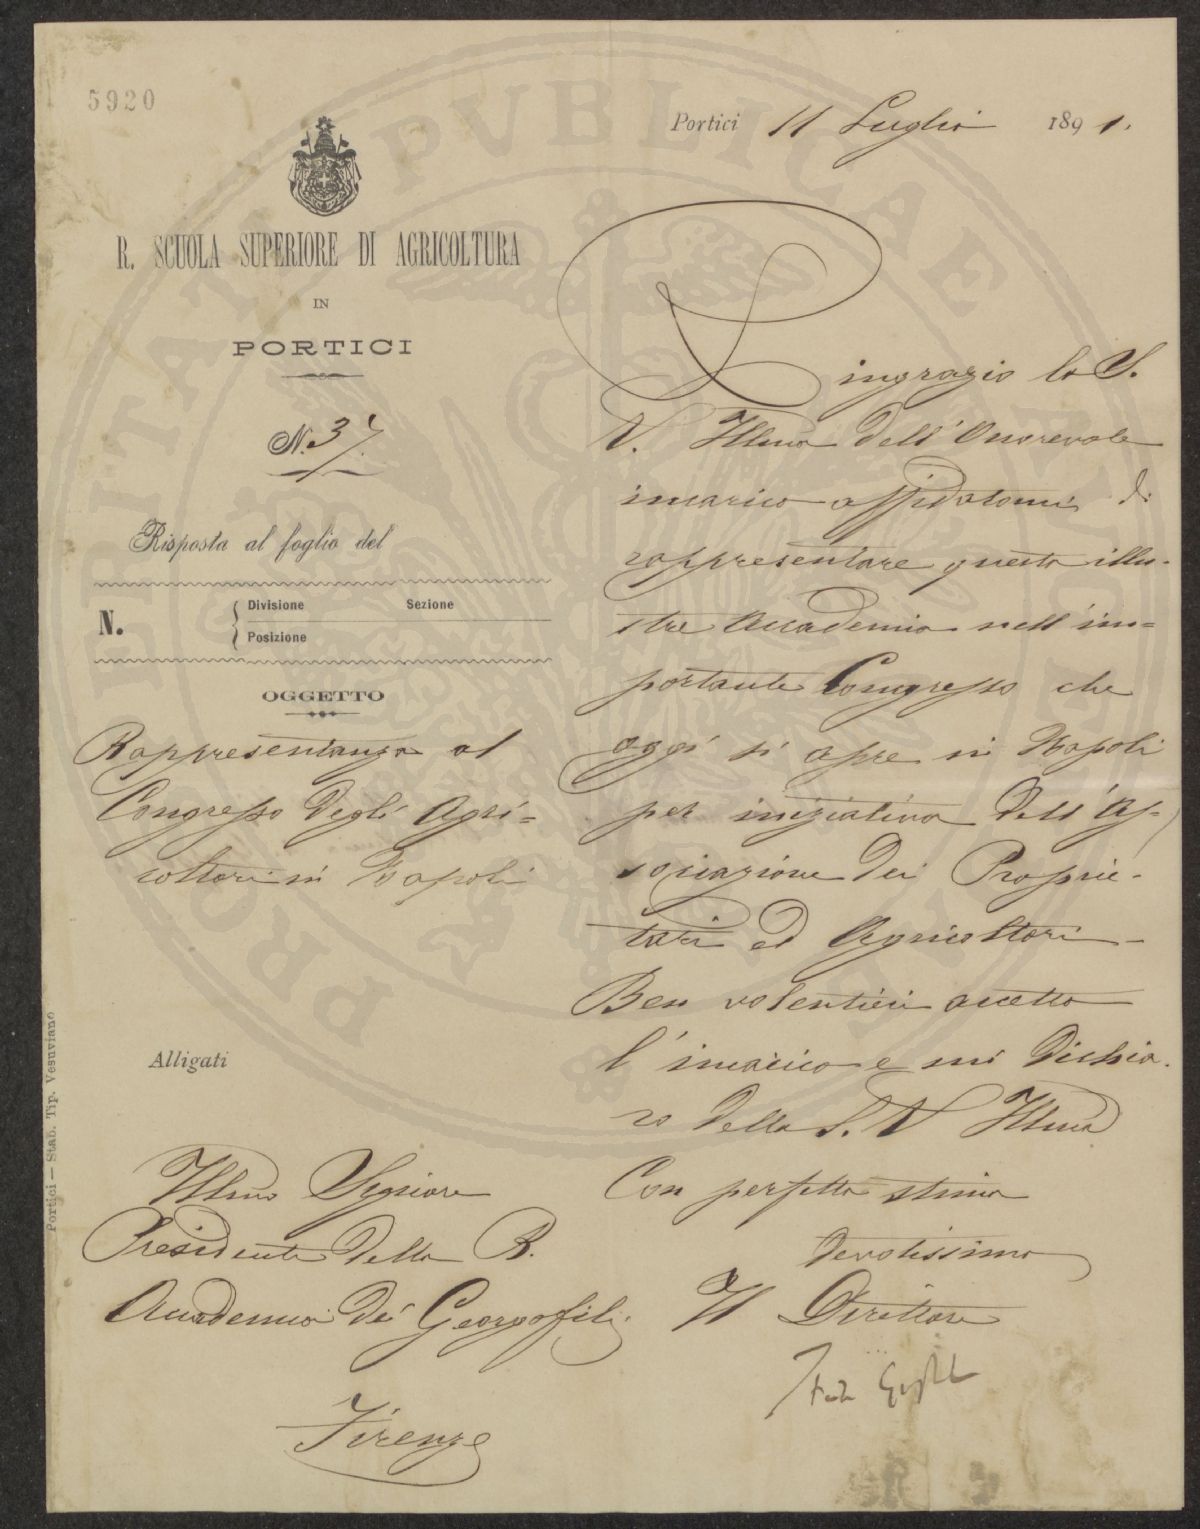 5920
Portici 11 Luglio 1891.
R. SCUOLA SUPERIORE DI AGRICOLTURA
IN
PORTICI
N. 37.
Risposta al foglio del
N. Divisione Sezione
Posizione
OGGETTO
Rappresentanza al
Congresso degli Agri=
coltori in Napoli
Alligati
Illmo Signore
Presidente della R.
Accademia dei Georgofili.
Firenze
Ringrazio la S.
V. Illma dell'Onorevole
incarico affidatomi di
rappresentare questa illu-
stre Accademia nell'im=
portante Congresso che
oggi si apre in Napoli
per iniziativa dell'As-
sociazione dei Proprie-
tari ed Agricoltori-
Ben volentieri accetto
l'incarico e mi dichia-
ro della S. V Illma
Con perfetta stima
devotissimo
Il Direttore
Portici — Stab. Tip. Vesuviano
PROPRIETATIS PVBLICAE